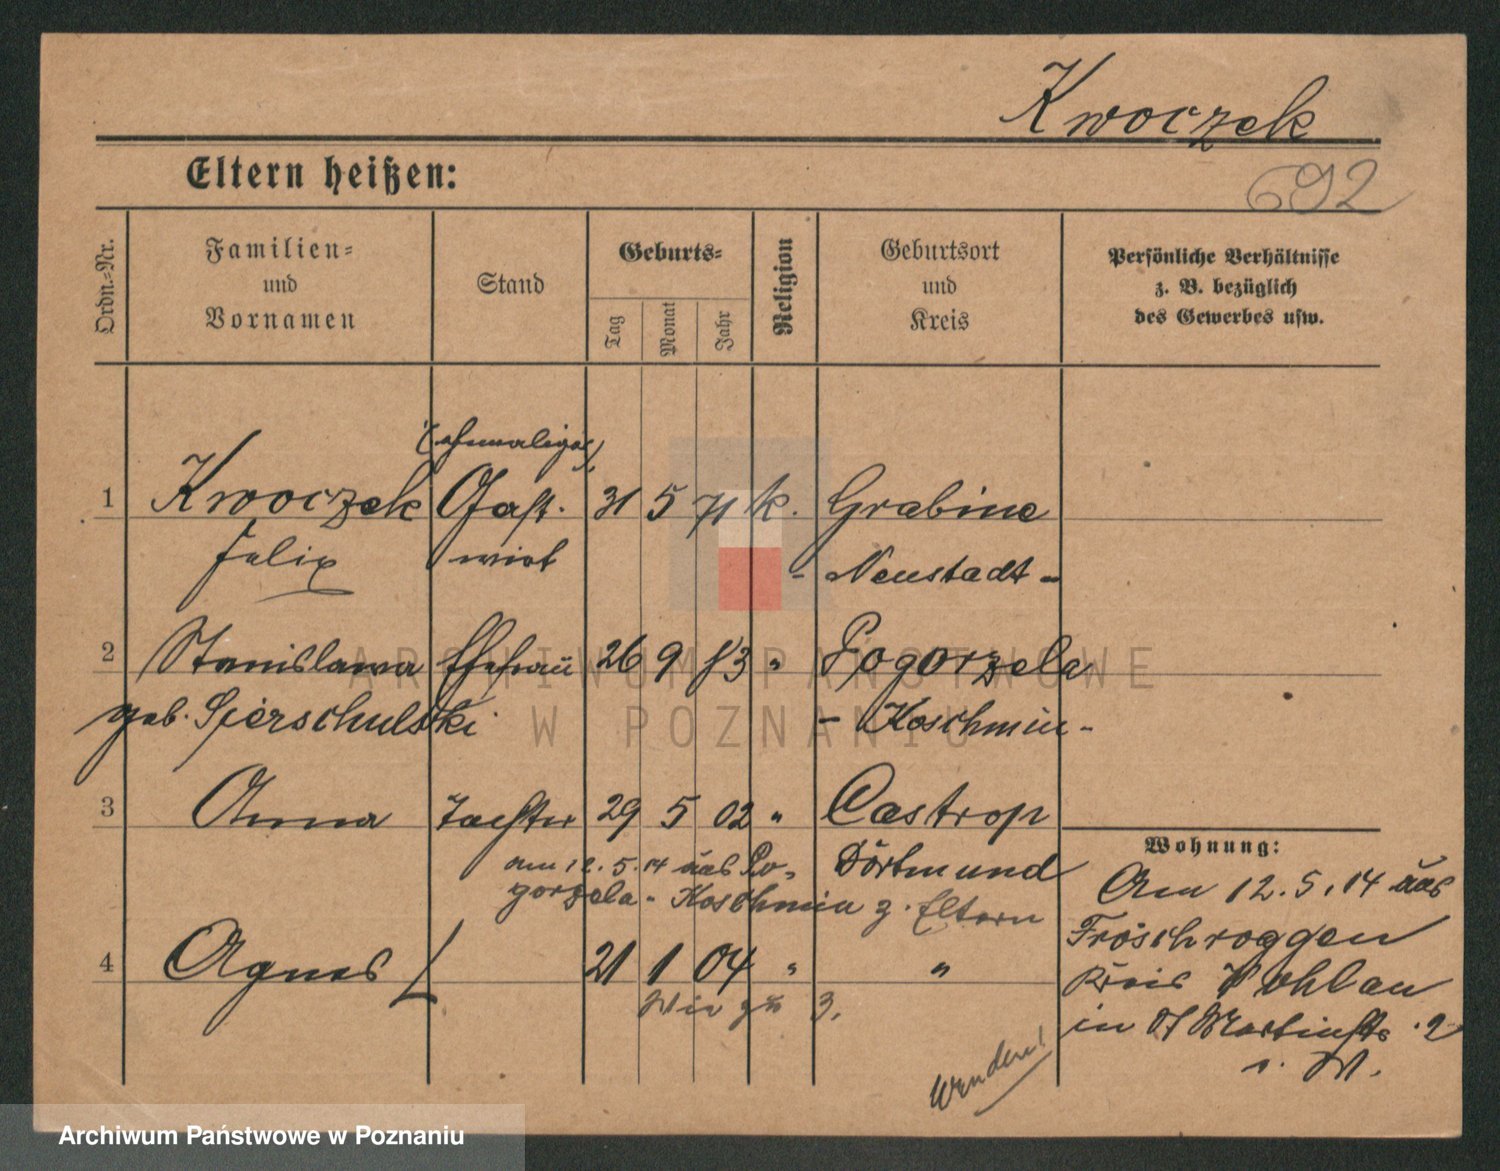 Kwoczek
Eltern heißen:
692
Ordn.-Nr.
Familien-
und
Vornamen
Stand
Geburts-
Tag
Monat
Jahr
Religion
Geburtsort
und
Kreis
Persönliche Verhältnisse
z. B. bezüglich
des Gewerbes usw.
(ehemaliger)
1 Kwoczek Gast- 31 5 71 k. Grabine
Felix wirt - Neustadt -
2 Stanislawa Ehefrau 26 9 83 " Pogorzela
geb. Spierschulski - Koschmin -
3 Anna Tochter 29 5 02 " Castrop
Dortmund
am 12.5.14 aus Po-
gorzela - Koschmin z. Eltern
4 Agnes 21 1 04 " "
Wie zu 3.
Wohnung:
Am 12.5.14 aus
Fröschroggen
Kreis Wohlau
in St Martinstr. 2
Wenden!
ARCHIWUM PAŃSTWOWE
W POZNANIU
Archiwum Państwowe w Poznaniu